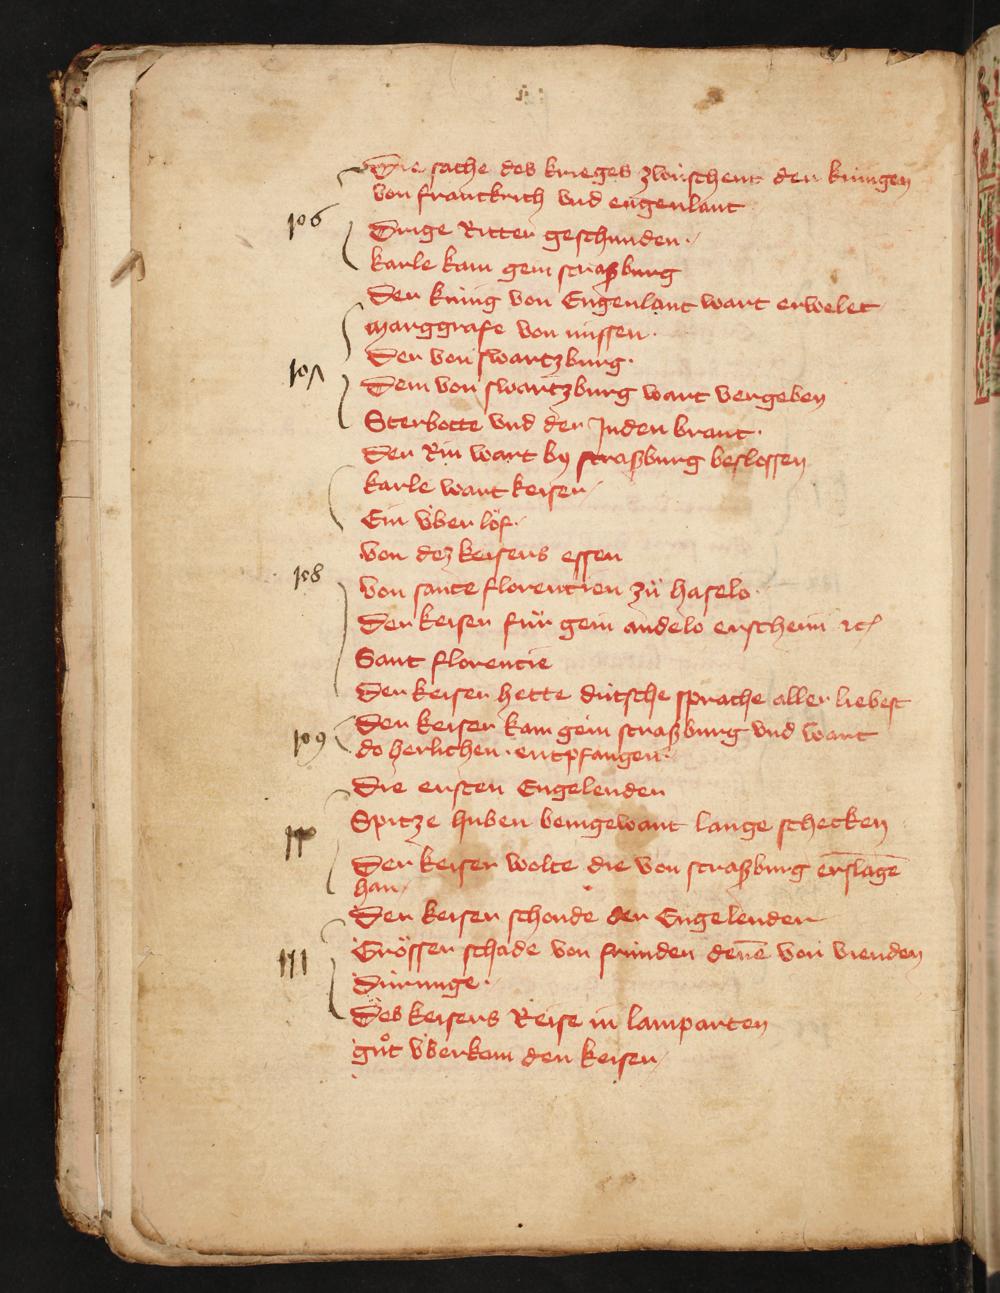 Die sache des krieges zwüschent den künigen
von franckrich vnd engenlant
106
Drige Ritter geschunden
karle kam gein straßburg
Der künig von Engenlant wart erwelet
marggrafe von missen
Der von swartzburg
107
Dem von swartzburg wart vergeben
Sterbotte vnd der Juden brant
Der Rin wart by straßburg beslossen
karle wart keiser
Ein v̈ber löf
von dez keisers essen
108
von sante florencien zu̍ haselo
Der keiser fůr gein andelo erschein ꝛc
Sant florencie
Der keiser hette dütsche sprache aller liebest
109
Der keiser kam gein straßburg vnd wart
do herlichen entpfangen
Die ersten Engelender
Spitze huben beingewant lange schecken
110
Der keiser wolte die von straßburg erslagē
han
Der keiser schonde der Engelender
111
Grösser schade von fründen denē von vienden
Dürunge
Des keisers Reise in lamparten
gůt v̈berkam den keiser